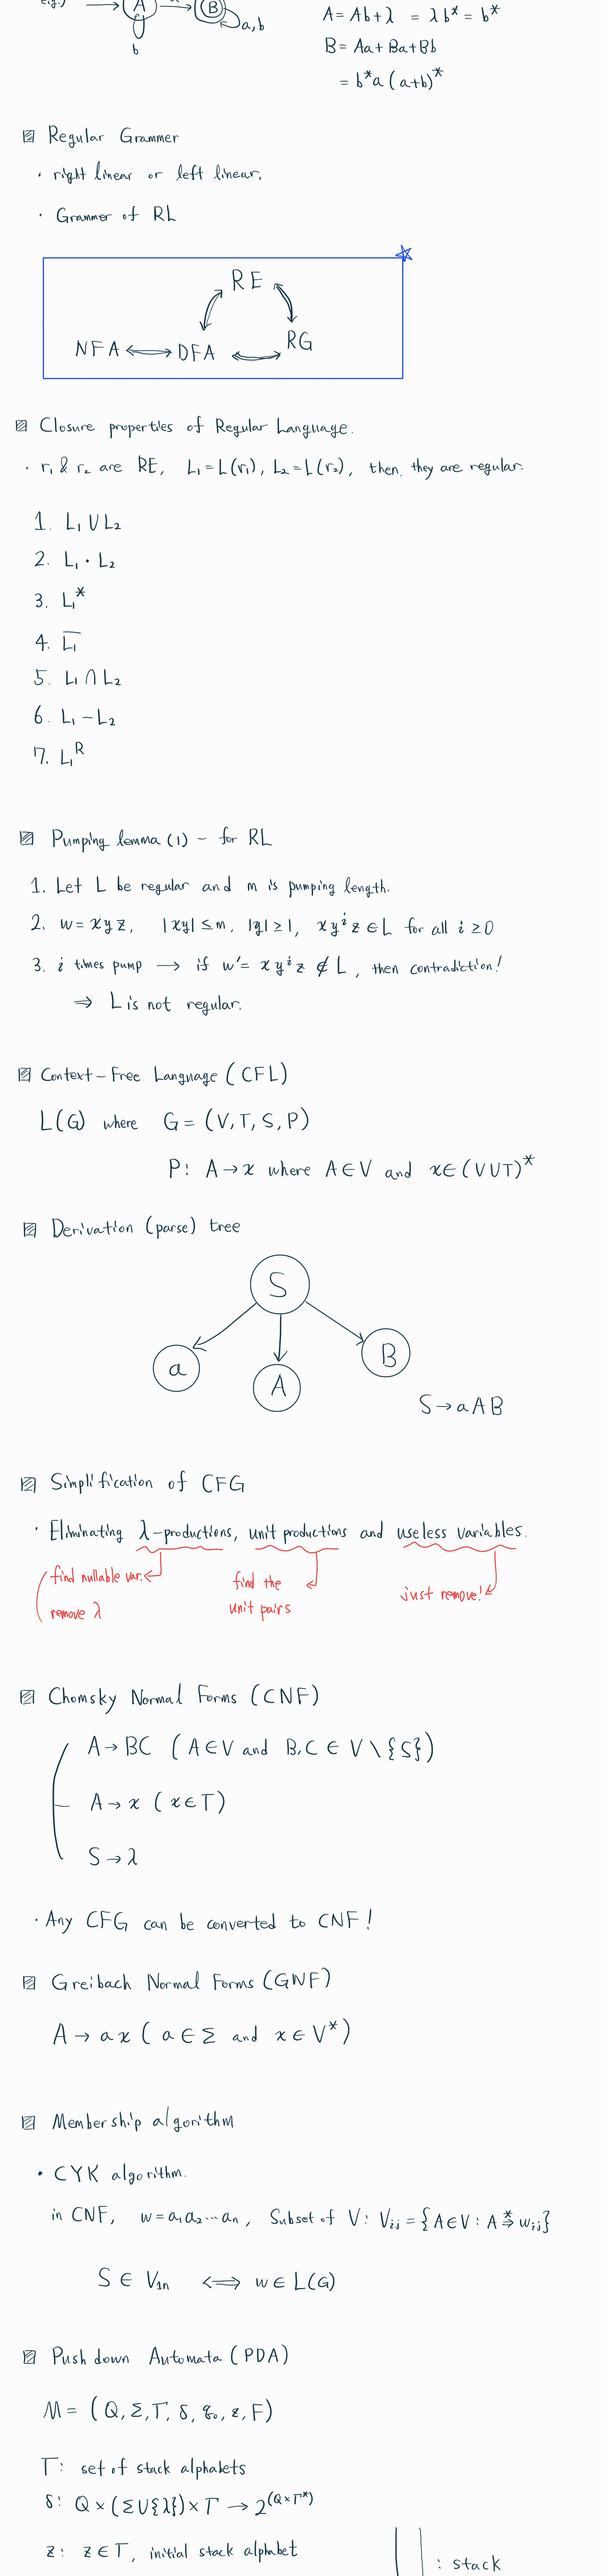 e.g.)
A
B
a,b
b
A = Ab + λ = λb* = b*
B = Aa + Ba + Bb
= b*a(a+b)*
Regular Grammer
· right linear or left linear.
· Grammer of RL
RE
NFA ⟺ DFA ⟺ RG
Closure properties of Regular Language.
· r₁ & r₂ are RE, L₁ = L(r₁), L₂ = L(r₂), then, they are regular.
1. L₁ ∪ L₂
2. L₁ · L₂
3. L₁*
4. L̅₁
5. L₁ ∩ L₂
6. L₁ − L₂
7. L₁ᴿ
Pumping lemma (1) - for RL
1. Let L be regular and m is pumping length.
2. w = xyz, |xy| ≤ m, |y| ≥ 1, xyⁱz ∈ L for all i ≥ 0
3. i times pump → if w' = xyⁱz ∉ L, then contradiction!
⇒ L is not regular.
Context-Free Language (CFL)
L(G) where G = (V, T, S, P)
P: A → x where A ∈ V and x ∈ (V∪T)*
Derivation (parse) tree
S
a
A
B
S → aAB
Simplification of CFG
· Eliminating λ-productions, unit productions and useless variables.
find nullable var.
remove λ
find the
unit pairs
just remove!
Chomsky Normal Forms (CNF)
A → BC (A ∈ V and B, C ∈ V \ {S})
A → x (x ∈ T)
S → λ
· Any CFG can be converted to CNF!
Greibach Normal Forms (GNF)
A → ax (a ∈ Σ and x ∈ V*)
Membership algorithm
· CYK algorithm.
in CNF, w = a₁a₂…aₙ, Subset of V: Vᵢⱼ = {A ∈ V : A ⇒* wᵢⱼ}
S ∈ V₁ₙ ⟺ w ∈ L(G)
Push down Automata (PDA)
M = (Q, Σ, Γ, δ, q₀, z, F)
Γ: set of stack alphabets
δ: Q × (Σ∪{λ}) × Γ → 2^(Q×Γ*)
z: z ∈ Γ, initial stack alphabet
: stack